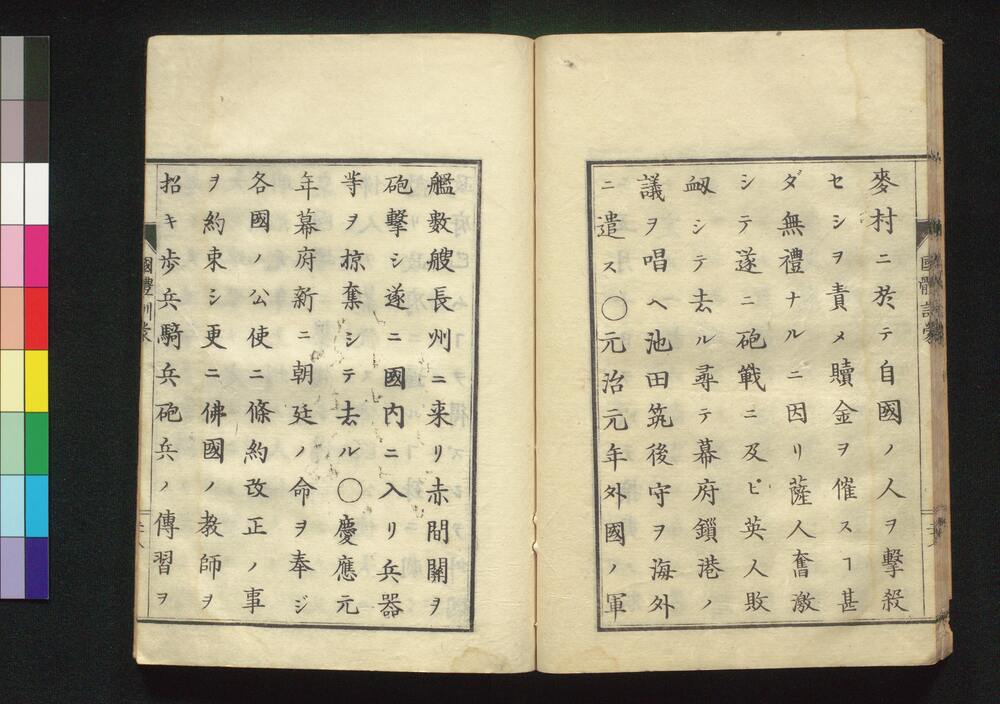 麥村ニ於テ自國ノ人ヲ擊殺
セシヲ責メ贖金ヲ催スヿ甚
ダ無禮ナルニ因リ薩人奮激
シテ遂ニ砲戰ニ及ビ英人敗
衂シテ去ル尋テ幕府鎖港ノ
議ヲ唱ヘ池田筑後守ヲ海外
ニ遣ス〇元治元年外國ノ軍
艦數艘長州ニ来リ赤間關ヲ
砲擊シ遂ニ國内ニ入リ兵器
等ヲ掠奪シテ去ル〇慶應元
年幕府新ニ朝廷ノ命ヲ奉ジ
各國ノ公使ニ條約改正ノ事
ヲ約束シ更ニ佛國ノ教師ヲ
招キ歩兵騎兵砲兵ノ傳習ヲ